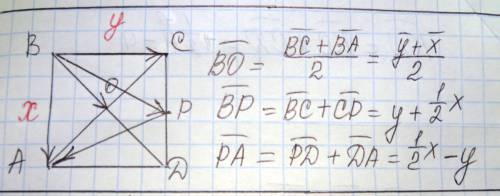 y
B C
O
x P
A D
B̅O̅ = (B̅C̅ + B̅A̅)/2 = (y̅ + x̅)/2
B̅P̅ = B̅C̅ + C̅P̅ = y + 1/2 x
P̅A̅ = P̅D̅ + D̅A̅ = 1/2 x - y